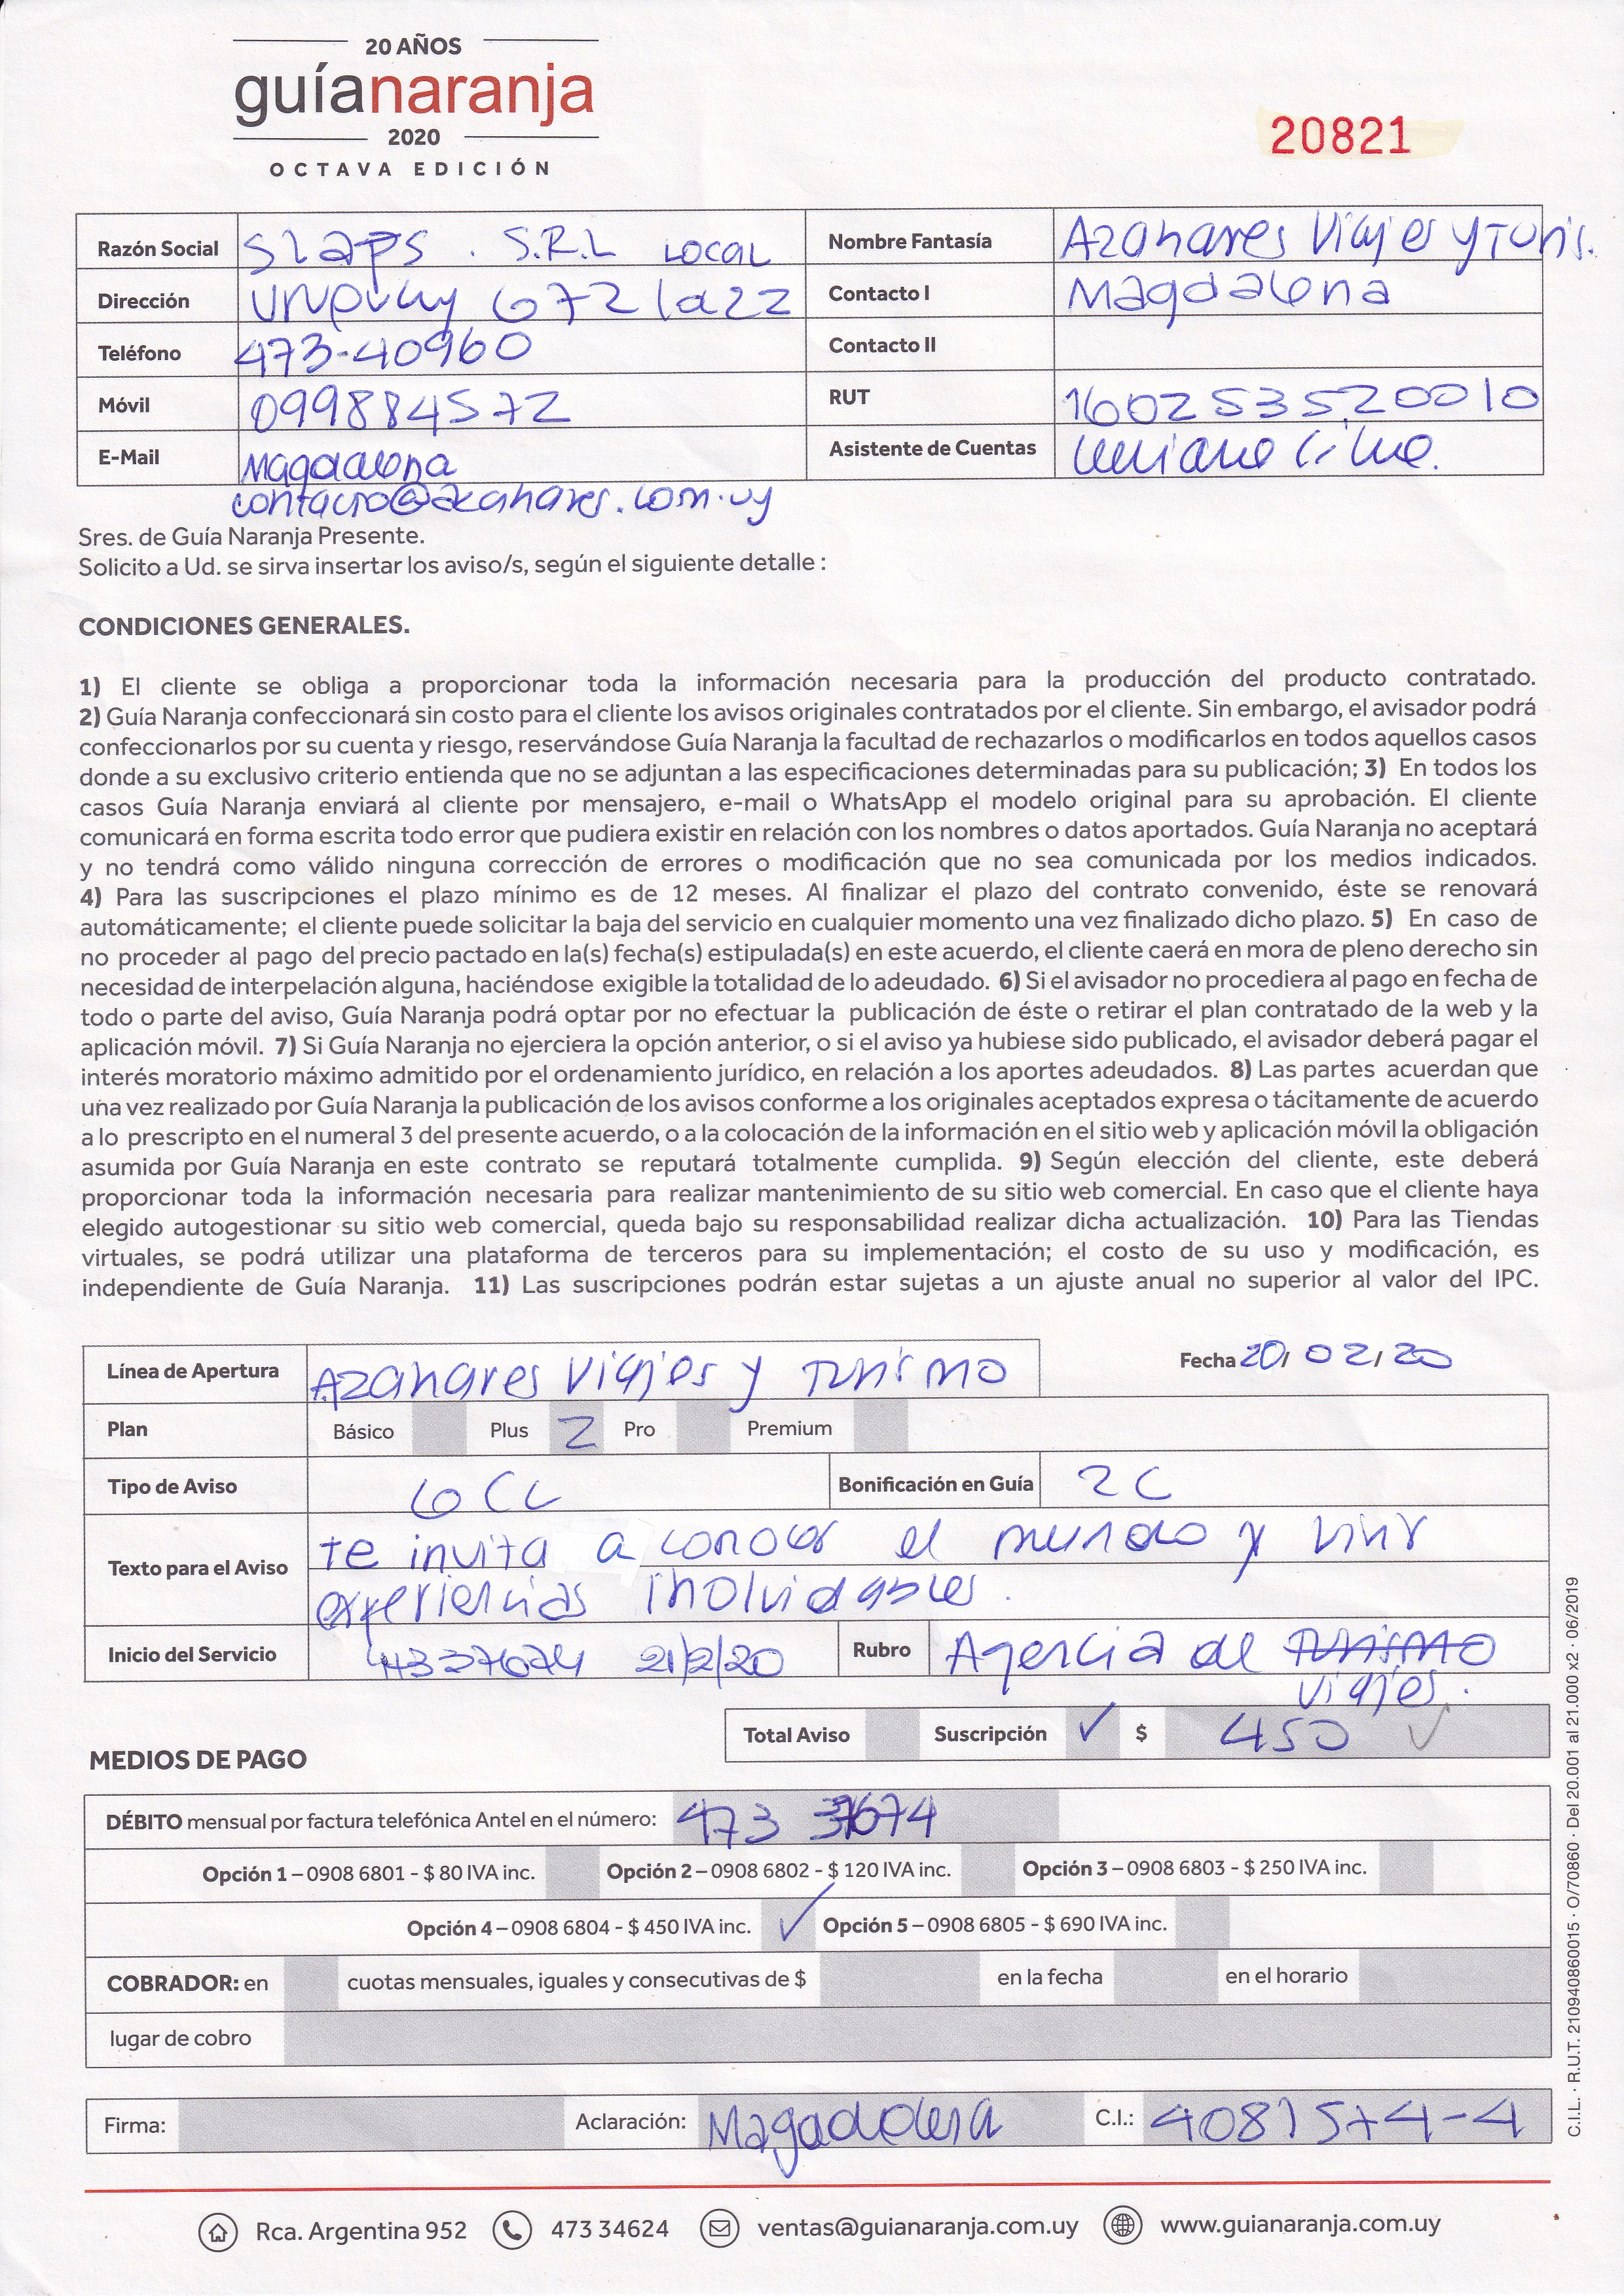 20 AÑOS
guíanaranja
2020
OCTAVA EDICIÓN
20821
Razón Social Slaps . S.R.L LOCAL Nombre Fantasía Azahares Viajes y Turis.
Dirección Uruguay 672 1a22 Contacto I Magdalena
Teléfono 473-40960 Contacto II
Móvil 099884572 RUT 160253520010
E-Mail Magdalena Asistente de Cuentas
contacto@azahares.com.uy
Sres. de Guía Naranja Presente.
Solicito a Ud. se sirva insertar los aviso/s, según el siguiente detalle :
CONDICIONES GENERALES.
1) El cliente se obliga a proporcionar toda la información necesaria para la producción del producto contratado.
2) Guía Naranja confeccionará sin costo para el cliente los avisos originales contratados por el cliente. Sin embargo, el avisador podrá
confeccionarlos por su cuenta y riesgo, reservándose Guía Naranja la facultad de rechazarlos o modificarlos en todos aquellos casos
donde a su exclusivo criterio entienda que no se adjuntan a las especificaciones determinadas para su publicación; 3) En todos los
casos Guía Naranja enviará al cliente por mensajero, e-mail o WhatsApp el modelo original para su aprobación. El cliente
comunicará en forma escrita todo error que pudiera existir en relación con los nombres o datos aportados. Guía Naranja no aceptará
y no tendrá como válido ninguna corrección de errores o modificación que no sea comunicada por los medios indicados.
4) Para las suscripciones el plazo mínimo es de 12 meses. Al finalizar el plazo del contrato convenido, éste se renovará
automáticamente; el cliente puede solicitar la baja del servicio en cualquier momento una vez finalizado dicho plazo. 5) En caso de
no proceder al pago del precio pactado en la(s) fecha(s) estipulada(s) en este acuerdo, el cliente caerá en mora de pleno derecho sin
necesidad de interpelación alguna, haciéndose exigible la totalidad de lo adeudado. 6) Si el avisador no procediera al pago en fecha de
todo o parte del aviso, Guía Naranja podrá optar por no efectuar la publicación de éste o retirar el plan contratado de la web y la
aplicación móvil. 7) Si Guía Naranja no ejerciera la opción anterior, o si el aviso ya hubiese sido publicado, el avisador deberá pagar el
interés moratorio máximo admitido por el ordenamiento jurídico, en relación a los aportes adeudados. 8) Las partes acuerdan que
una vez realizado por Guía Naranja la publicación de los avisos conforme a los originales aceptados expresa o tácitamente de acuerdo
a lo prescripto en el numeral 3 del presente acuerdo, o a la colocación de la información en el sitio web y aplicación móvil la obligación
asumida por Guía Naranja en este contrato se reputará totalmente cumplida. 9) Según elección del cliente, este deberá
proporcionar toda la información necesaria para realizar mantenimiento de su sitio web comercial. En caso que el cliente haya
elegido autogestionar su sitio web comercial, queda bajo su responsabilidad realizar dicha actualización. 10) Para las Tiendas
virtuales, se podrá utilizar una plataforma de terceros para su implementación; el costo de su uso y modificación, es
independiente de Guía Naranja. 11) Las suscripciones podrán estar sujetas a un ajuste anual no superior al valor del IPC.
Línea de Apertura Azahares Viajes y Turismo Fecha 20/ 02/ 20
Plan Básico Plus 2 Pro Premium
Tipo de Aviso 6 CC Bonificación en Guía 2C
Texto para el Aviso te invita a conocer el mundo y vivir
experiencias inolvidables.
Inicio del Servicio 21/2/20 Rubro Agencia de Turismo
viajes.
Total Aviso Suscripción ✓ $ 450 ✓
MEDIOS DE PAGO
DÉBITO mensual por factura telefónica Antel en el número: 473 37674
Opción 1 – 0908 6801 - $ 80 IVA inc. Opción 2 – 0908 6802 - $ 120 IVA inc. Opción 3 – 0908 6803 - $ 250 IVA inc.
Opción 4 – 0908 6804 - $ 450 IVA inc. ✓ Opción 5 – 0908 6805 - $ 690 IVA inc.
COBRADOR: en cuotas mensuales, iguales y consecutivas de $ en la fecha en el horario
lugar de cobro
Firma: Aclaración: Magadalena C.I.: 4081574-4
Rca. Argentina 952 473 34624 ventas@guianaranja.com.uy www.guianaranja.com.uy
C.I.L. · R.U.T. 210940860015 · O/70860 · Del 20.001 al 21.000 x2 · 06/2019